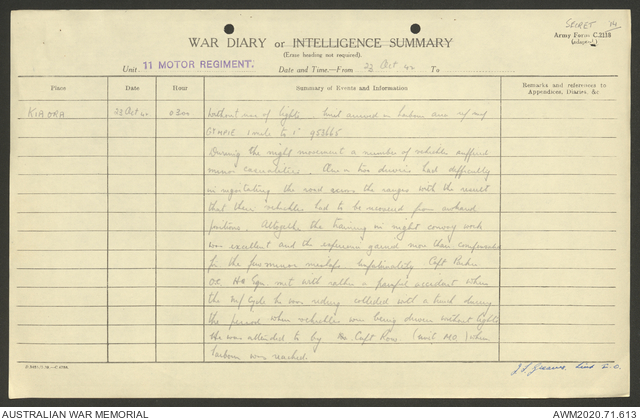 SECRET
Army Form C.2118
WAR DIARY or INTELLIGENCE SUMMARY
(Erase heading not required).
Unit 11 MOTOR REGIMENT. Date and Time—From 23 Oct 42 To
Place Date Hour Summary of Events and Information Remarks and references to Appendices, Diaries, &c
KIA ORA 23 Oct 42 0300 Without use of lights. Unit arrived in harbour area
GYMPIE 1 mile to 1" 953665
During the night movement a number of vehicles suffered
minor casualties. One or two drivers had difficulty
in negotiating the road across the ranges with the result
that their vehicles had to be rescued from awkward
positions. Altogether the training in night convoy work
was excellent and the experience gained more than compensated
for the few minor mishaps. Unfortunately Capt
OC HQ Sqn. met with rather a painful accident when
the M/Cycle he was riding collided with a truck during
the period when vehicles were being driven without lights
He was attended to by the Capt Ross. (unit MO) when
harbour was reached.
AUSTRALIAN WAR MEMORIAL
AWM2020.71.613